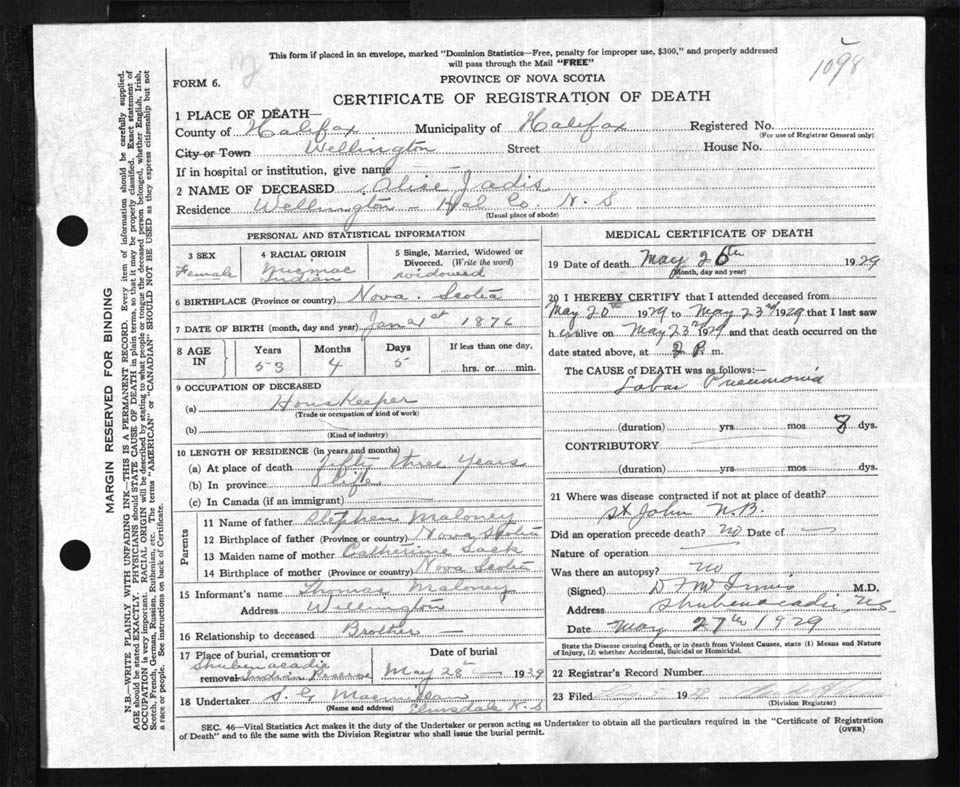 This form if placed in an envelope, marked "Dominion Statistics—Free, penalty for improper use, $300," and properly addressed
will pass through the Mail "FREE"
1098
FORM 6.
PROVINCE OF NOVA SCOTIA
CERTIFICATE OF REGISTRATION OF DEATH
1 PLACE OF DEATH—
County of Halifax Municipality of Halifax Registered No.
(For use of Registrar General only)
City or Town Wellington Street House No.
If in hospital or institution, give name —
2 NAME OF DECEASED Alice Jadis
Residence Wellington - Hal Co. N. S
(Usual place of abode)
PERSONAL AND STATISTICAL INFORMATION
3 SEX
Female
4 RACIAL ORIGIN
Indian
5 Single, Married, Widowed or
Divorced. (Write the word)
widowed
6 BIRTHPLACE (Province or country) Nova. Scotia
7 DATE OF BIRTH (month, day and year) Jan 21st 1876
8 AGE IN
Years 53
Months 4
Days 5
If less than one day,
hrs. or min.
9 OCCUPATION OF DECEASED
(a) HousKeeper
(Trade or occupation of kind of work)
(b)
(Kind of industry)
10 LENGTH OF RESIDENCE (in years and months)
(a) At place of death fifty three years
(b) In province life
(c) In Canada (if an immigrant)
Parents
11 Name of father Stephen Maloney
12 Birthplace of father (Province or country) Nova Scotia
13 Maiden name of mother Catherine Sack
14 Birthplace of mother (Province or country) Nova Scotia
15 Informant's name Thomas Maloney
Address Wellington
16 Relationship to deceased Brother —
17 Place of burial, cremation or
removal Shubenacadie
Indian Reserve
Date of burial
May 28 — 1929
18 Undertaker S. G Macmillan
(Name and address) Elmsdale N. S
MEDICAL CERTIFICATE OF DEATH
19 Date of death May 26th 1929
(Month, day and year)
20 I HEREBY CERTIFY that I attended deceased from
May 20th 1929 to May 23rd 1929 that I last saw
h alive on May 23rd 1929 and that death occurred on the
date stated above, at 2 P. m.
The CAUSE of DEATH was as follows:—
Lobar Pneumonia
(duration) yrs mos 8 dys.
CONTRIBUTORY
(duration) yrs mos dys.
21 Where was disease contracted if not at place of death?
St John N. B.
Did an operation precede death? no Date of —
Nature of operation —
Was there an autopsy? no
(Signed) D F M Innis M.D.
Address Shubenacadie, N.S.
Date May 27th 1929
State the Disease causing Death, or in death from Violent Causes, state (1) Means and Nature
of Injury, (2) whether Accidental, Suicidal or Homicidal.
22 Registrar's Record Number
23 Filed 19
(Division Registrar)
SEC. 46—Vital Statistics Act makes it the duty of the Undertaker or person acting as Undertaker to obtain all the particulars required in the "Certificate of Registration
of Death" and to file the same with the Division Registrar who shall issue the burial permit.
(OVER)
MARGIN RESERVED FOR BINDING
N.B.—WRITE PLAINLY WITH UNFADING INK—THIS IS A PERMANENT RECORD. Every item of information should be carefully supplied.
AGE should be stated EXACTLY. PHYSICIANS should STATE CAUSE OF DEATH in plain terms, so that it may be properly classified. Exact statement of
OCCUPATION is very important. RACIAL ORIGIN will be described by stating to what people or tongue the deceased person belonged, whether English, Irish,
Scotch, French, German, Russian, Ruthenian, etc. The terms "AMERICAN" or "CANADIAN" SHOULD NOT BE USED as they express citizenship but not
a race or people. See instructions on back of Certificate.